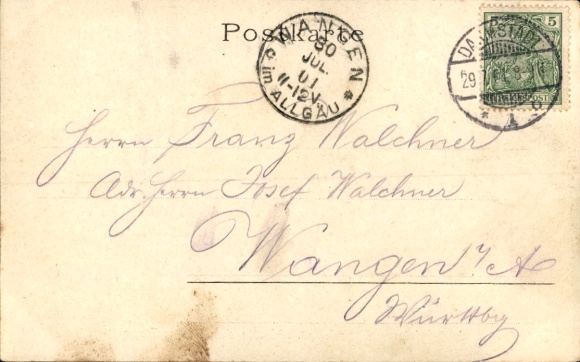 Postkarte
WANGEN
30
JUL.
01
11-12V.
im ALLGÄU
5 5
DARMSTADT
29
* 1 *
REICHSPOST
Herrn Franz Walchner
Adr. Herrn Josef Walchner
Wangen i/A
Württbg